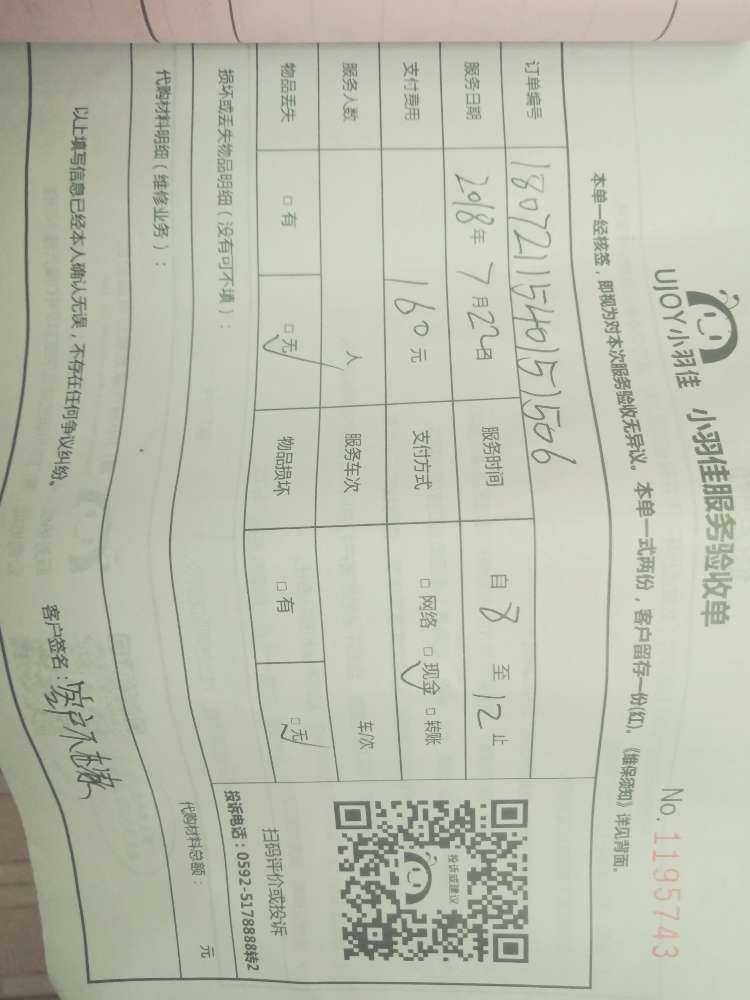 UJOY小羽佳 小羽佳服务验收单 No.1195743
本单一经核签，即视为对本次服务验收无异议。本单一式两份，客户留存一份(红)。《维保须知》详见背面。
订单编号 1807211540151506
服务日期 2018年7月22日 服务时间 自8至12止
支付费用 160元 支付方式 □网络 □现金 □转账
服务人数 人 服务车次 车/次
物品丢失 □有 □无 物品损坏 □有 □无
投诉或建议
扫码评价或投诉
投诉电话：0592-5178888转2
损坏或丢失物品明细（没有可不填）：
代购材料明细（维修业务）： 代购材料总额： 元
以上填写信息已经本人确认无误，不存在任何争议纠纷。 客户签名：